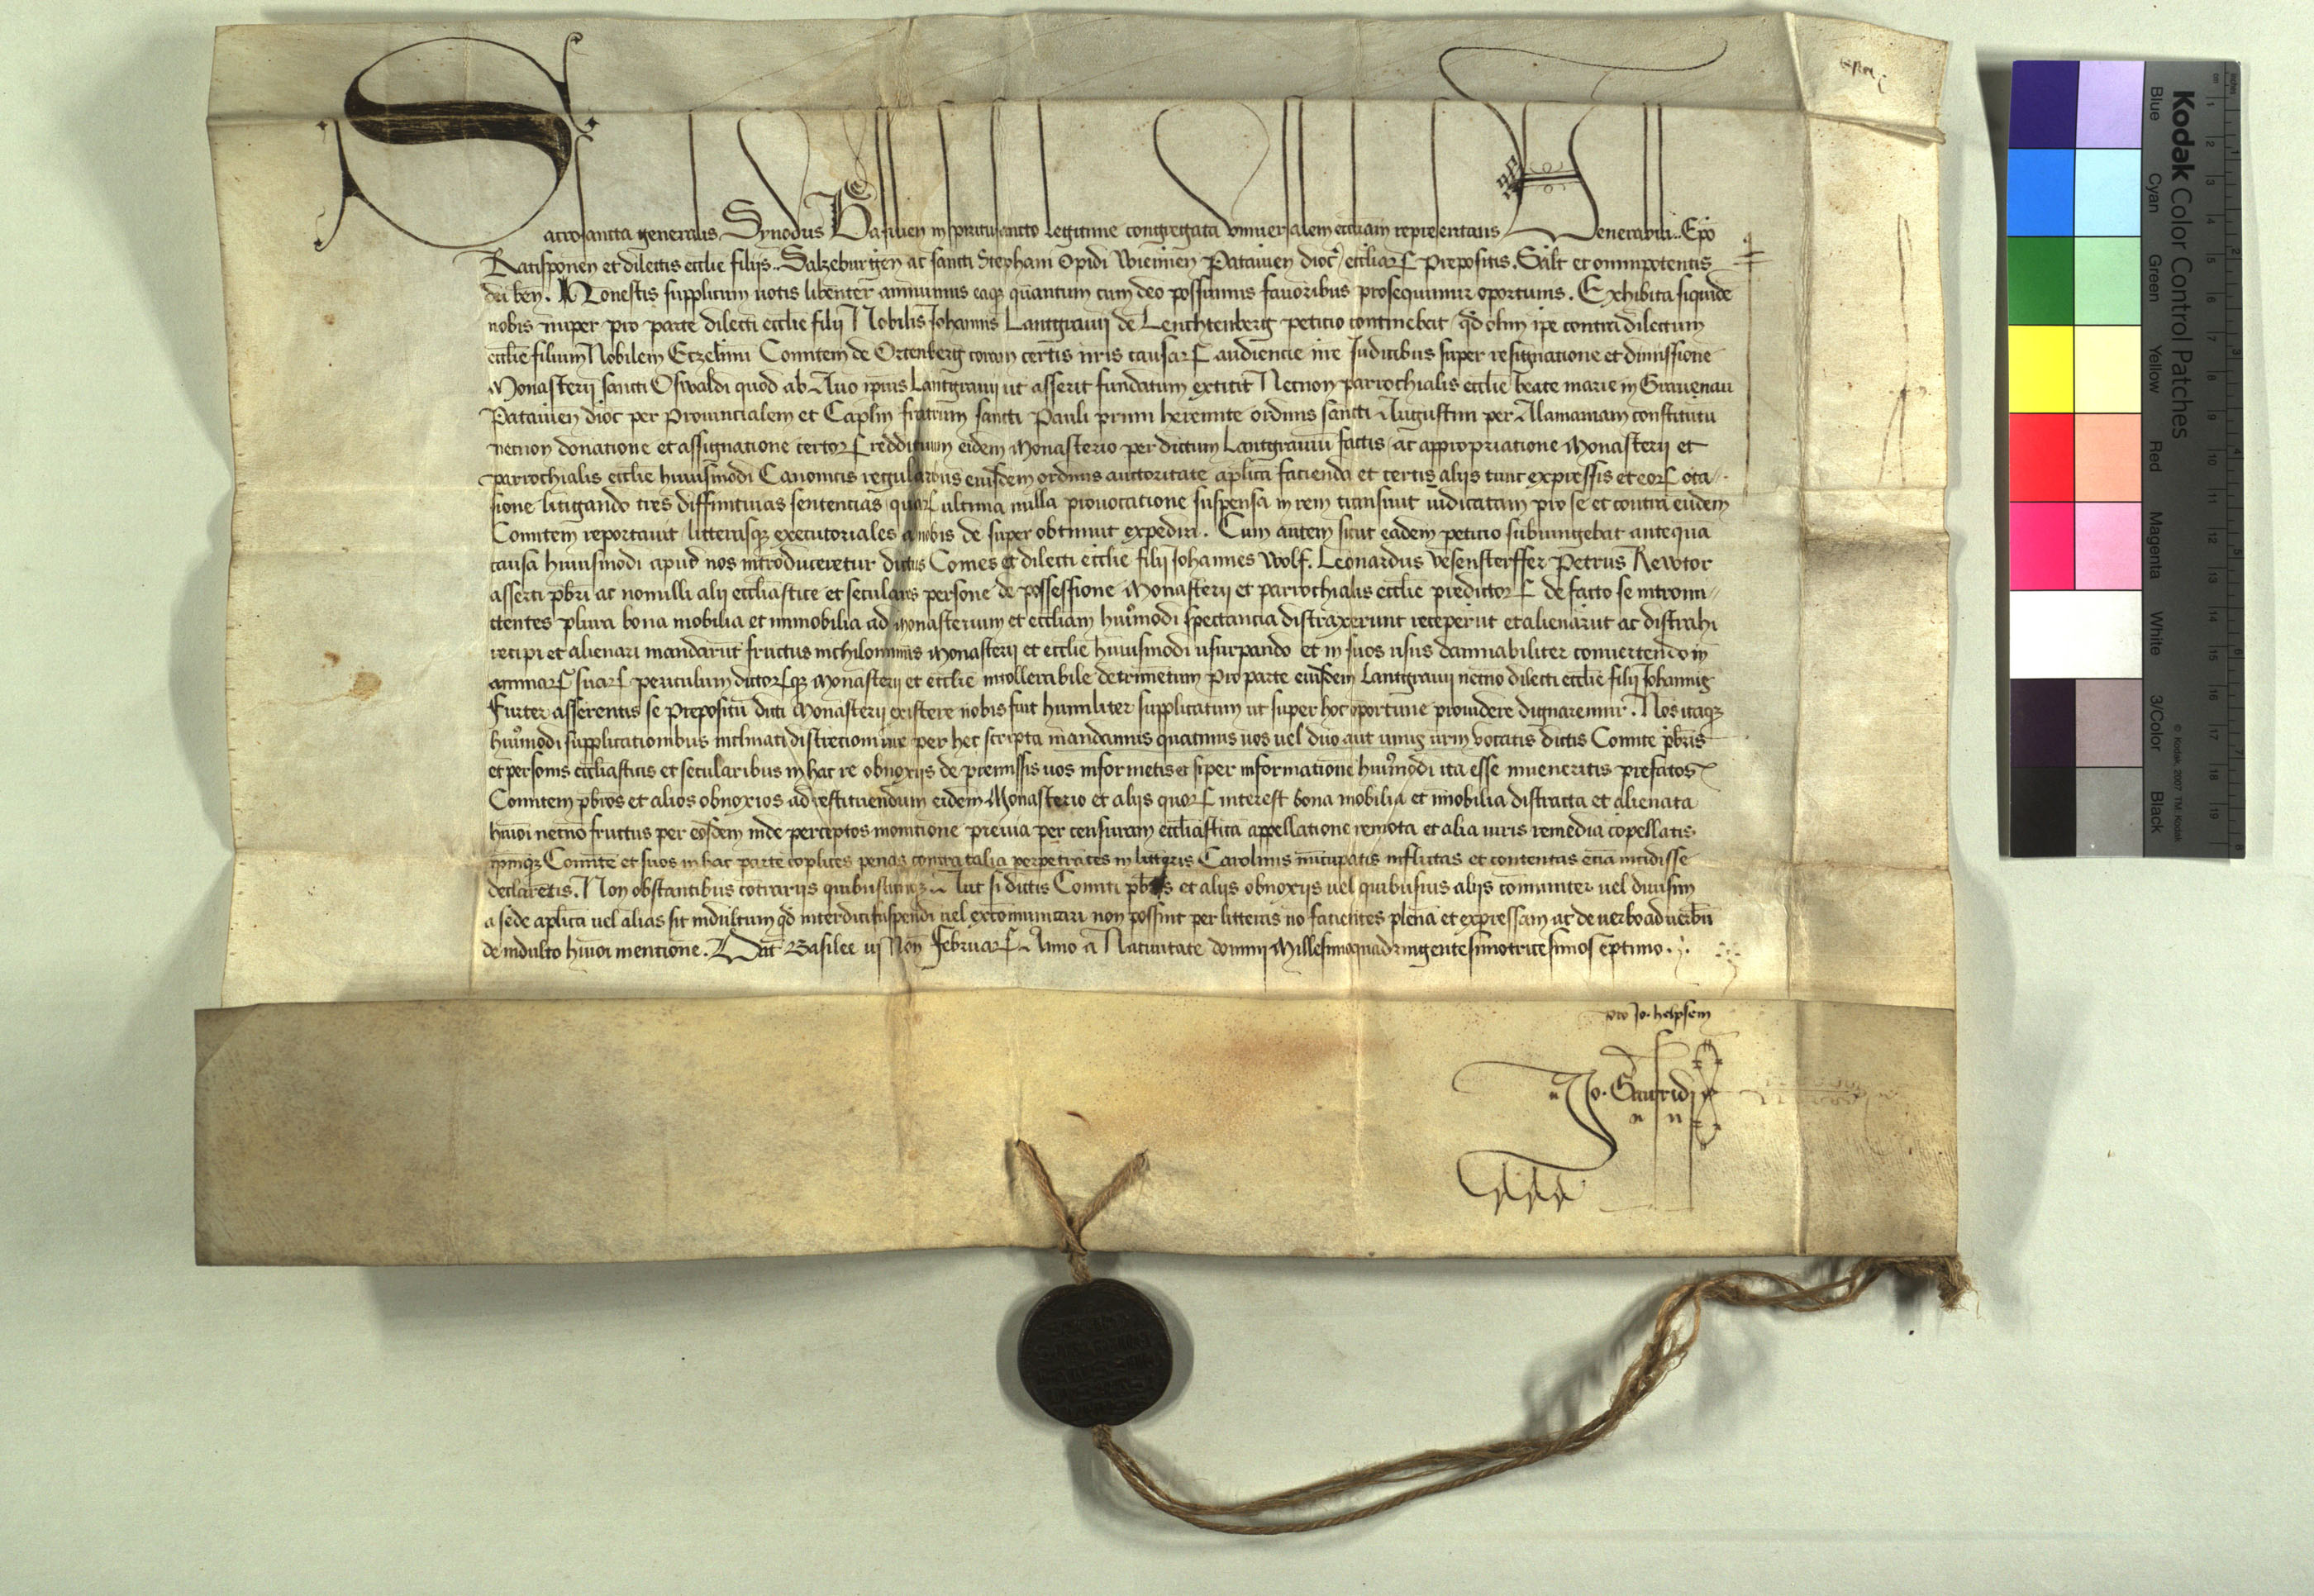 Sacrosancta generalis Synodus Basilien in spiritusancto legitime congregata vniuersalem eccliam representans Venerabili .. Epo
Ratisponen et dilectis ecclie filijs .. Salzeburgen ac sancti Stephani Opidi Wiennen Patauien dioc eccliarꝝ Prepositis. Salt et omnipotentis
dei ben. Honestis supplicum uotis libenter annuimus eaqꝫ quantum cum deo possumus fauoribus prosequimur oportunis. Exhibita siquidē
nobis nuper pro parte dilecti ecclie filij Nobilis Iohannis Lantgrauij de Leuchtenberg peticio continebat qd olim ipe contra dilectum
ecclie filium Nobilem Etzelinū Comitem de Ortenberg coram certis nris causarꝝ audiencie ire Iudicibus super resignatione et dimissione
Monasterij sancti Oswaldi quod ab Auo ipius Lantgrauij ut asserit fundatum extitit Necnon parrochialis ecclie beate marie in Grauenau
Patauien dioc per Prouincialem et Caplm fratrum sancti Pauli primi heremite ordinis sancti Augustini per Alamaniam constitutū
necnon donatione et assignatione certorꝝ reddituum eidem Monasterio per dictum Lantgrauiū factis ac appropriatione Monasterij et
parrochialis ecclie huiusmodi Canonicis regularibus eiusdem ordinis auctoritate aplica facienda et certis alijs tunc expressis et eorꝝ occa-
sione litigando tres diffinitiuas sentencias quarꝝ ultima nulla prouocatione suspensa in rem transiuit iudicatam pro se et contra eundem
Comitem reportauit litterasqꝫ executoriales a nobis de super obtinuit expediri. Cum autem sicut eadem peticio subiungebat antequā
causa huiusmodi apud nos introduceretur dictus Comes et dilecti ecclie filij Iohannes Wolf. Leonardus Vesensterffer Petrus Rewtor
asserti pbri ac nonnulli alij eccliastice et seculares persone de possessione Monasterij et parrochialis ecclie predictorꝝ de facto se intromi-
ttentes plura bona mobilia et immobilia ad Monasterium et eccliam huiusmodi spectancia distraxerunt receperūt et alienarūt ac distrahi
recipi et alienari mandarūt fructus nichilominus Monasterij et ecclie huiusmodi usurpando et in suos usus damnabiliter conuertendo in
animarꝝ suarꝝ periculum dictorꝝqꝫ Monasterij et ecclie intollerabile detrimētum Pro parte eiusdem Lantgrauij necno dilecti ecclie filij Iohannis
Furter asserentis se Prepositū dicti Monasterij existere nobis fuit humiliter supplicatum ut super hoc oportune prouidere dignaremur. Nos itaqꝫ
huiusmodi supplicationibus inclinati discretioni ure per hec scripta mandamus quatinus uos uel duo aut unus urm vocatis dictis Comite pbris
et personis eccliasticis et secularibus in hac re obnoxijs de premissis uos informetis et si per informationē huiusmodi ita esse inueneritis prefatos
Comitem pbros et alios obnoxios ad restituendum eidem Monasterio et alijs quorꝝ interest bona mobilia et īmobilia distracta et alienata
huioi necnō fructus per eosdem inde perceptos monitione preuia per censuram eccliasticā appellatione remota et alia iuris remedia cōpellatis
ipumqꝫ Comitē et suos in hac parte cōplices penas contra talia perpetrātes in litteris Carolinis nūcupatis inflictas et contentas eciā incidisse
declaretis. Non obstantibus cōtrarijs quibuscumqꝫ Aut si dictis Comiti pbris et alijs obnoxijs uel quibusuis alijs cōmuniter uel diuisim
a sede aplica uel alias sit indultum qd interdici suspendi uel excōmunicari non possint per litteras nō facientes plenā et expressam ac de uerbo ad uerbū
de indulto huioi mentionē. Dat Basilee vi Non Februarꝝ Anno a Natiuitate domini Millesimoquadringentesimotricesimoseptimo.
pro Jo. helpsem
Jo. Gaufridi
Kodak Color Control Patches
Blue Cyan Green Yellow Red Magenta White 3/Color Black
© Kodak, 2007 TM: Kodak
cm 1 2 3 4 5 6 7 8 9 10 11 12 13 14 15 16 17 18 19
inches 1 2 3 4 5 6 7 8